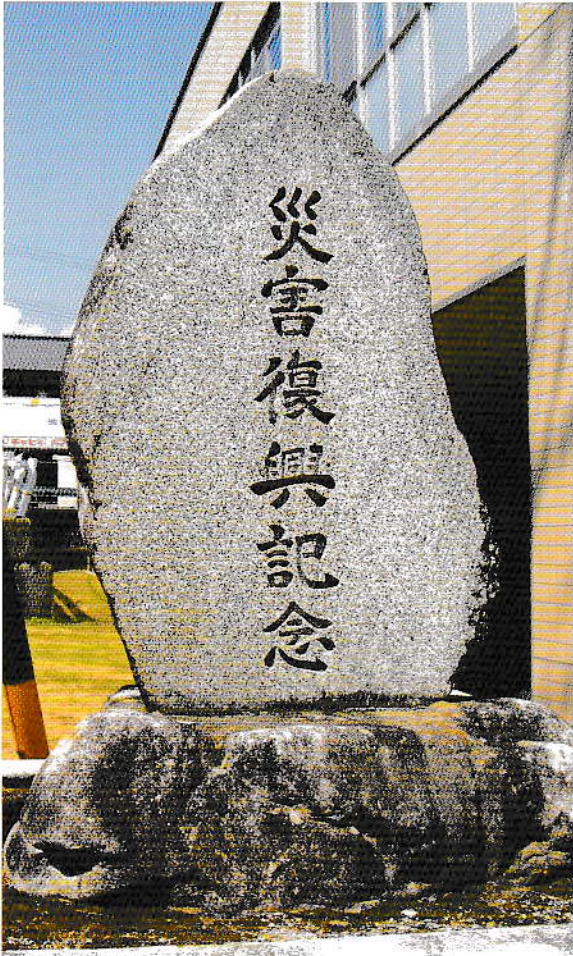 災害復興記念